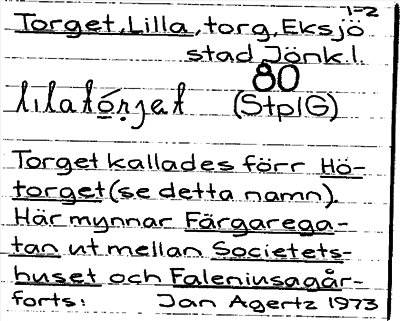 1-2
Torget, Lilla, torg, Eksjö
stad Jönk.l.
80
lilatórjet (StplG)
Torget kallades förr Hö-
torget (se detta namn).
Här mynnar Färgarega-
tan ut mellan Societets-
huset och Faleniusagår-
forts: Jan Agertz 1973